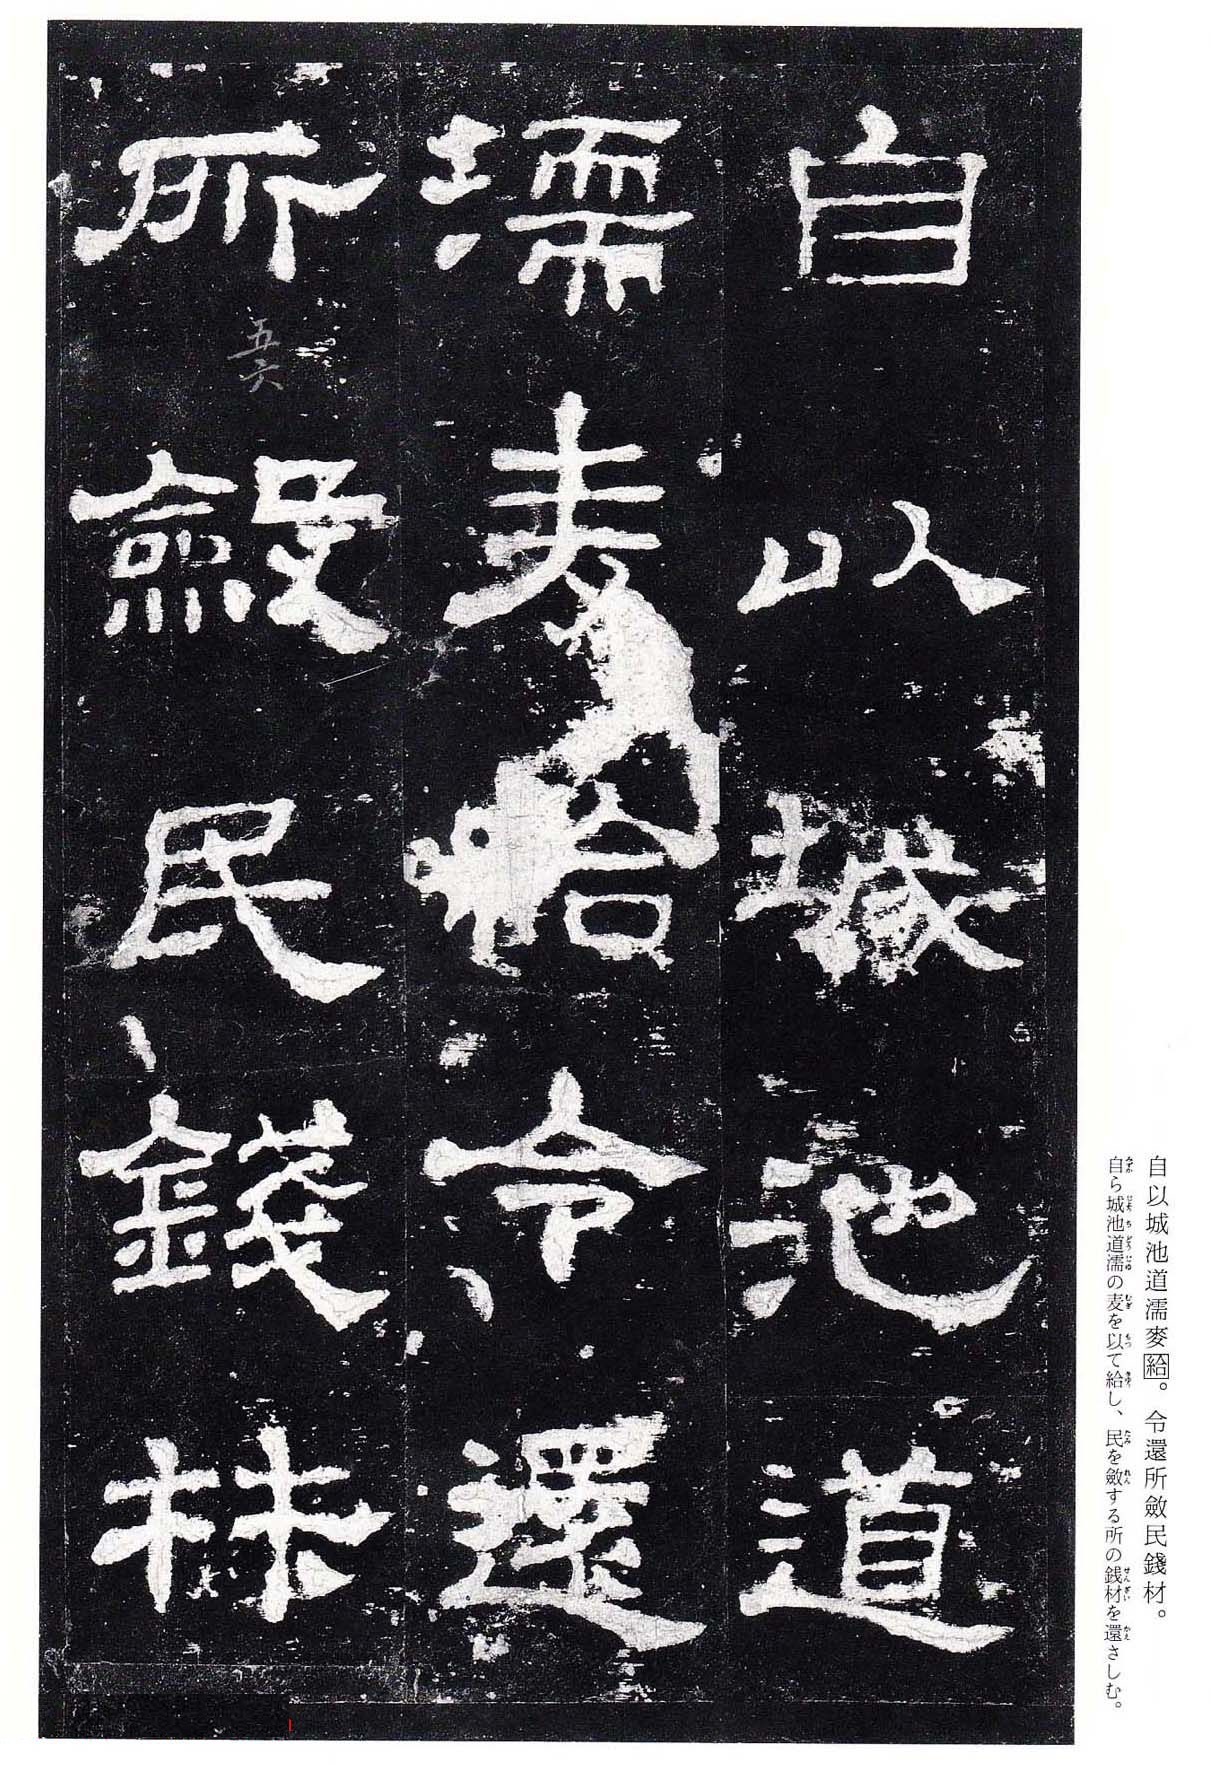 自以城池道
濡麥給令還
所斂民錢材
五六
自以城池道濡麥給。令還所斂民錢材。
自ら城池道濡の麦を以て給し、民を斂する所の銭材を還さしむ。